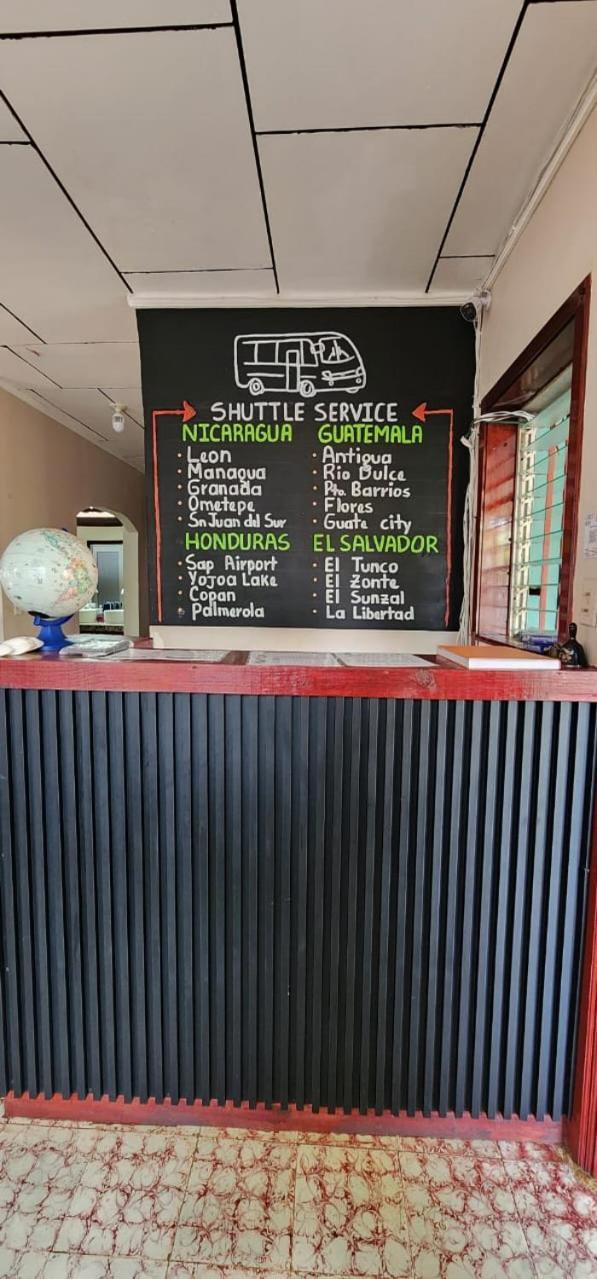 SHUTTLE SERVICE
NICARAGUA
• Leon
• Managua
• Granada
• Ometepe
• Sn Juan del Sur
GUATEMALA
• Antigua
• Rio Dulce
• Pto. Barrios
• Flores
• Guate city
HONDURAS
• Sap Airport
• Yojoa Lake
• Copan
• Palmerola
EL SALVADOR
• El Tunco
• El Zonte
• El Sunzal
• La Libertad